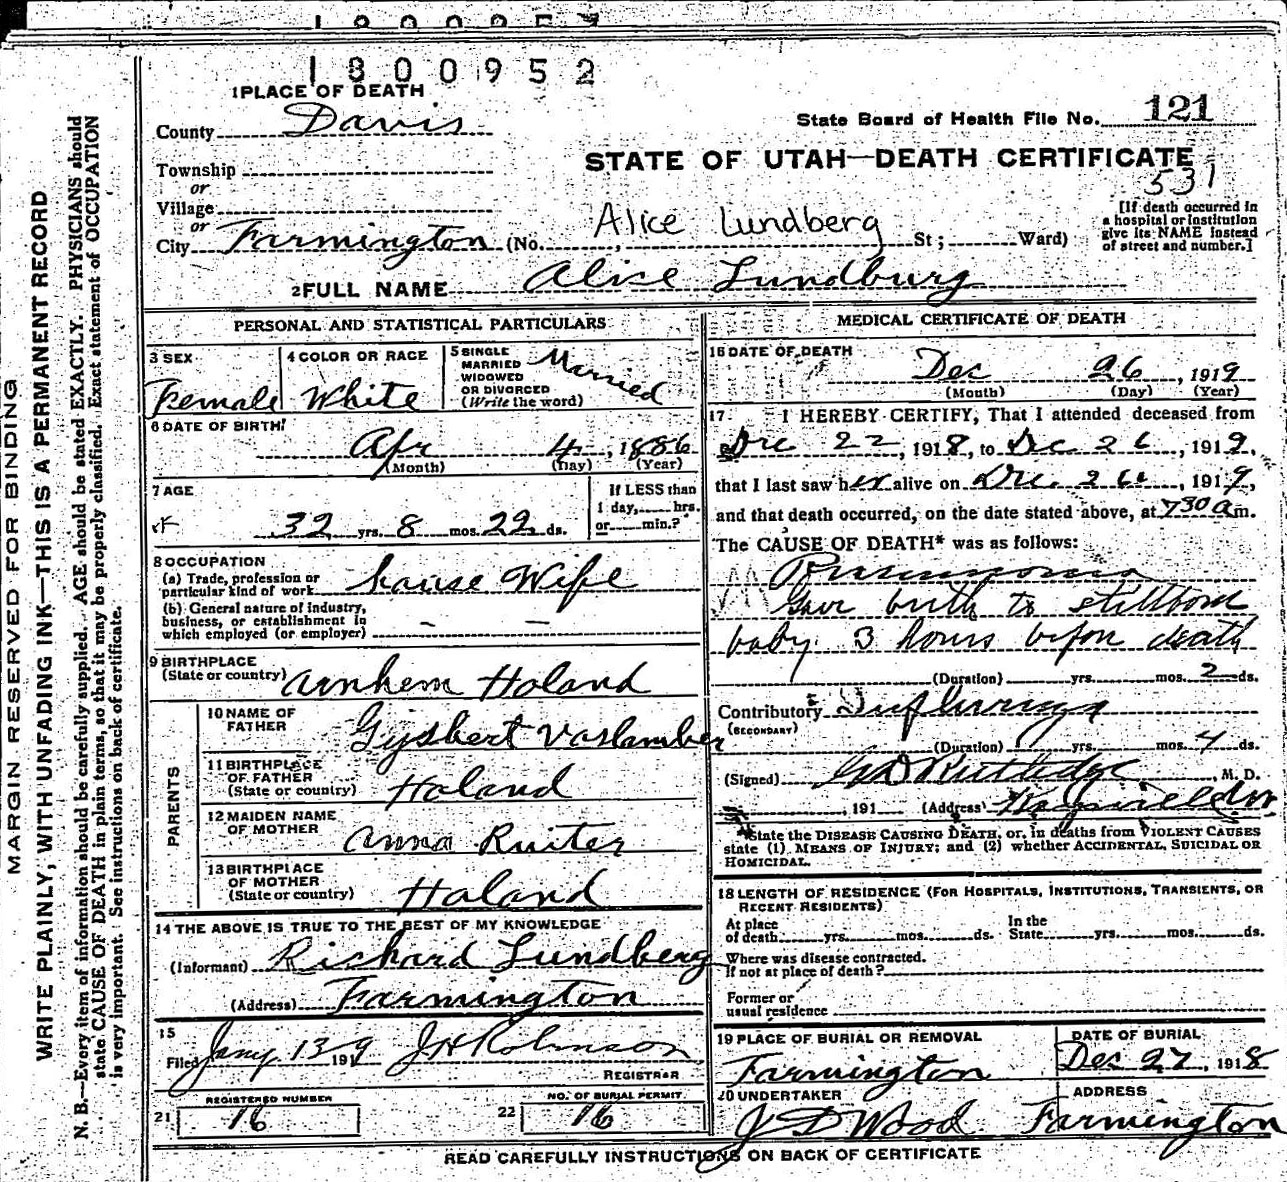 1800952
1 PLACE OF DEATH
County Davis
State Board of Health File No. 121
STATE OF UTAH—DEATH CERTIFICATE
531
Township
or
Village
or
City Farmington (No. , St; Ward)
Alice Lundberg
[If death occurred in
a hospital or institution
give its NAME instead
of street and number.]
2 FULL NAME Alice Lundburg
PERSONAL AND STATISTICAL PARTICULARS
3 SEX
Female
4 COLOR OR RACE
White
5 SINGLE
MARRIED
WIDOWED
OR DIVORCED
(Write the word)
Married
6 DATE OF BIRTH
Apr 4, 1886
(Month) (Day) (Year)
7 AGE
32 yrs. 8 mos. 22 ds.
If LESS than
1 day, hrs.
or min.?
8 OCCUPATION
(a) Trade, profession or
particular kind of work house Wife
(b) General nature of industry,
business, or establishment in
which employed (or employer) – –
9 BIRTHPLACE
(State or country) Arnhem Holand
PARENTS
10 NAME OF
FATHER Gijsbert Vaslamber
11 BIRTHPLACE
OF FATHER
(State or country) Holand
12 MAIDEN NAME
OF MOTHER Anna Ruiter
13 BIRTHPLACE
OF MOTHER
(State or country) Holand
14 THE ABOVE IS TRUE TO THE BEST OF MY KNOWLEDGE
(Informant) Richard Lundberg
(Address) Farmington
15
Filed Jany 13 1919 J H Robinson
REGISTRAR
REGISTERED NUMBER
21 16
NO. OF BURIAL PERMIT
22 16
MEDICAL CERTIFICATE OF DEATH
16 DATE OF DEATH
Dec 26, 1919
(Month) (Day) (Year)
17. I HEREBY CERTIFY, That I attended deceased from
Dec 22, 1918, to Dec 26, 1919,
that I last saw her alive on Dec. 26, 1919,
and that death occurred, on the date stated above, at 730 am.
The CAUSE OF DEATH* was as follows:
Pneumonia
Gave birth to stillborn
baby 3 hours before death
(Duration) yrs. mos. 2 ds.
Contributory Influenza
(SECONDARY)
(Duration) yrs. mos. 4 ds.
(Signed) Rutledge, M. D.
, 191 (Address)
*State the DISEASE CAUSING DEATH, or, in deaths from VIOLENT CAUSES
state (1) MEANS OF INJURY; and (2) whether ACCIDENTAL, SUICIDAL OR
HOMICIDAL.
18 LENGTH OF RESIDENCE (FOR HOSPITALS, INSTITUTIONS, TRANSIENTS, OR
RECENT RESIDENTS)
At place
of death yrs. mos. ds.
In the
State yrs. mos. ds.
Where was disease contracted.
If not at place of death?
Former or
usual residence
19 PLACE OF BURIAL OR REMOVAL
Farmington
DATE OF BURIAL
Dec 27, 1918
20 UNDERTAKER
J D Wood
ADDRESS
Farmington
READ CAREFULLY INSTRUCTIONS ON BACK OF CERTIFICATE
MARGIN RESERVED FOR BINDING
WRITE PLAINLY, WITH UNFADING INK—THIS IS A PERMANENT RECORD
N. B.—Every item of information should be carefully supplied. AGE should be stated EXACTLY. PHYSICIANS should
state CAUSE OF DEATH in plain terms, so that it may be properly classified. Exact statement of OCCUPATION
is very important. See instructions on back of certificate.